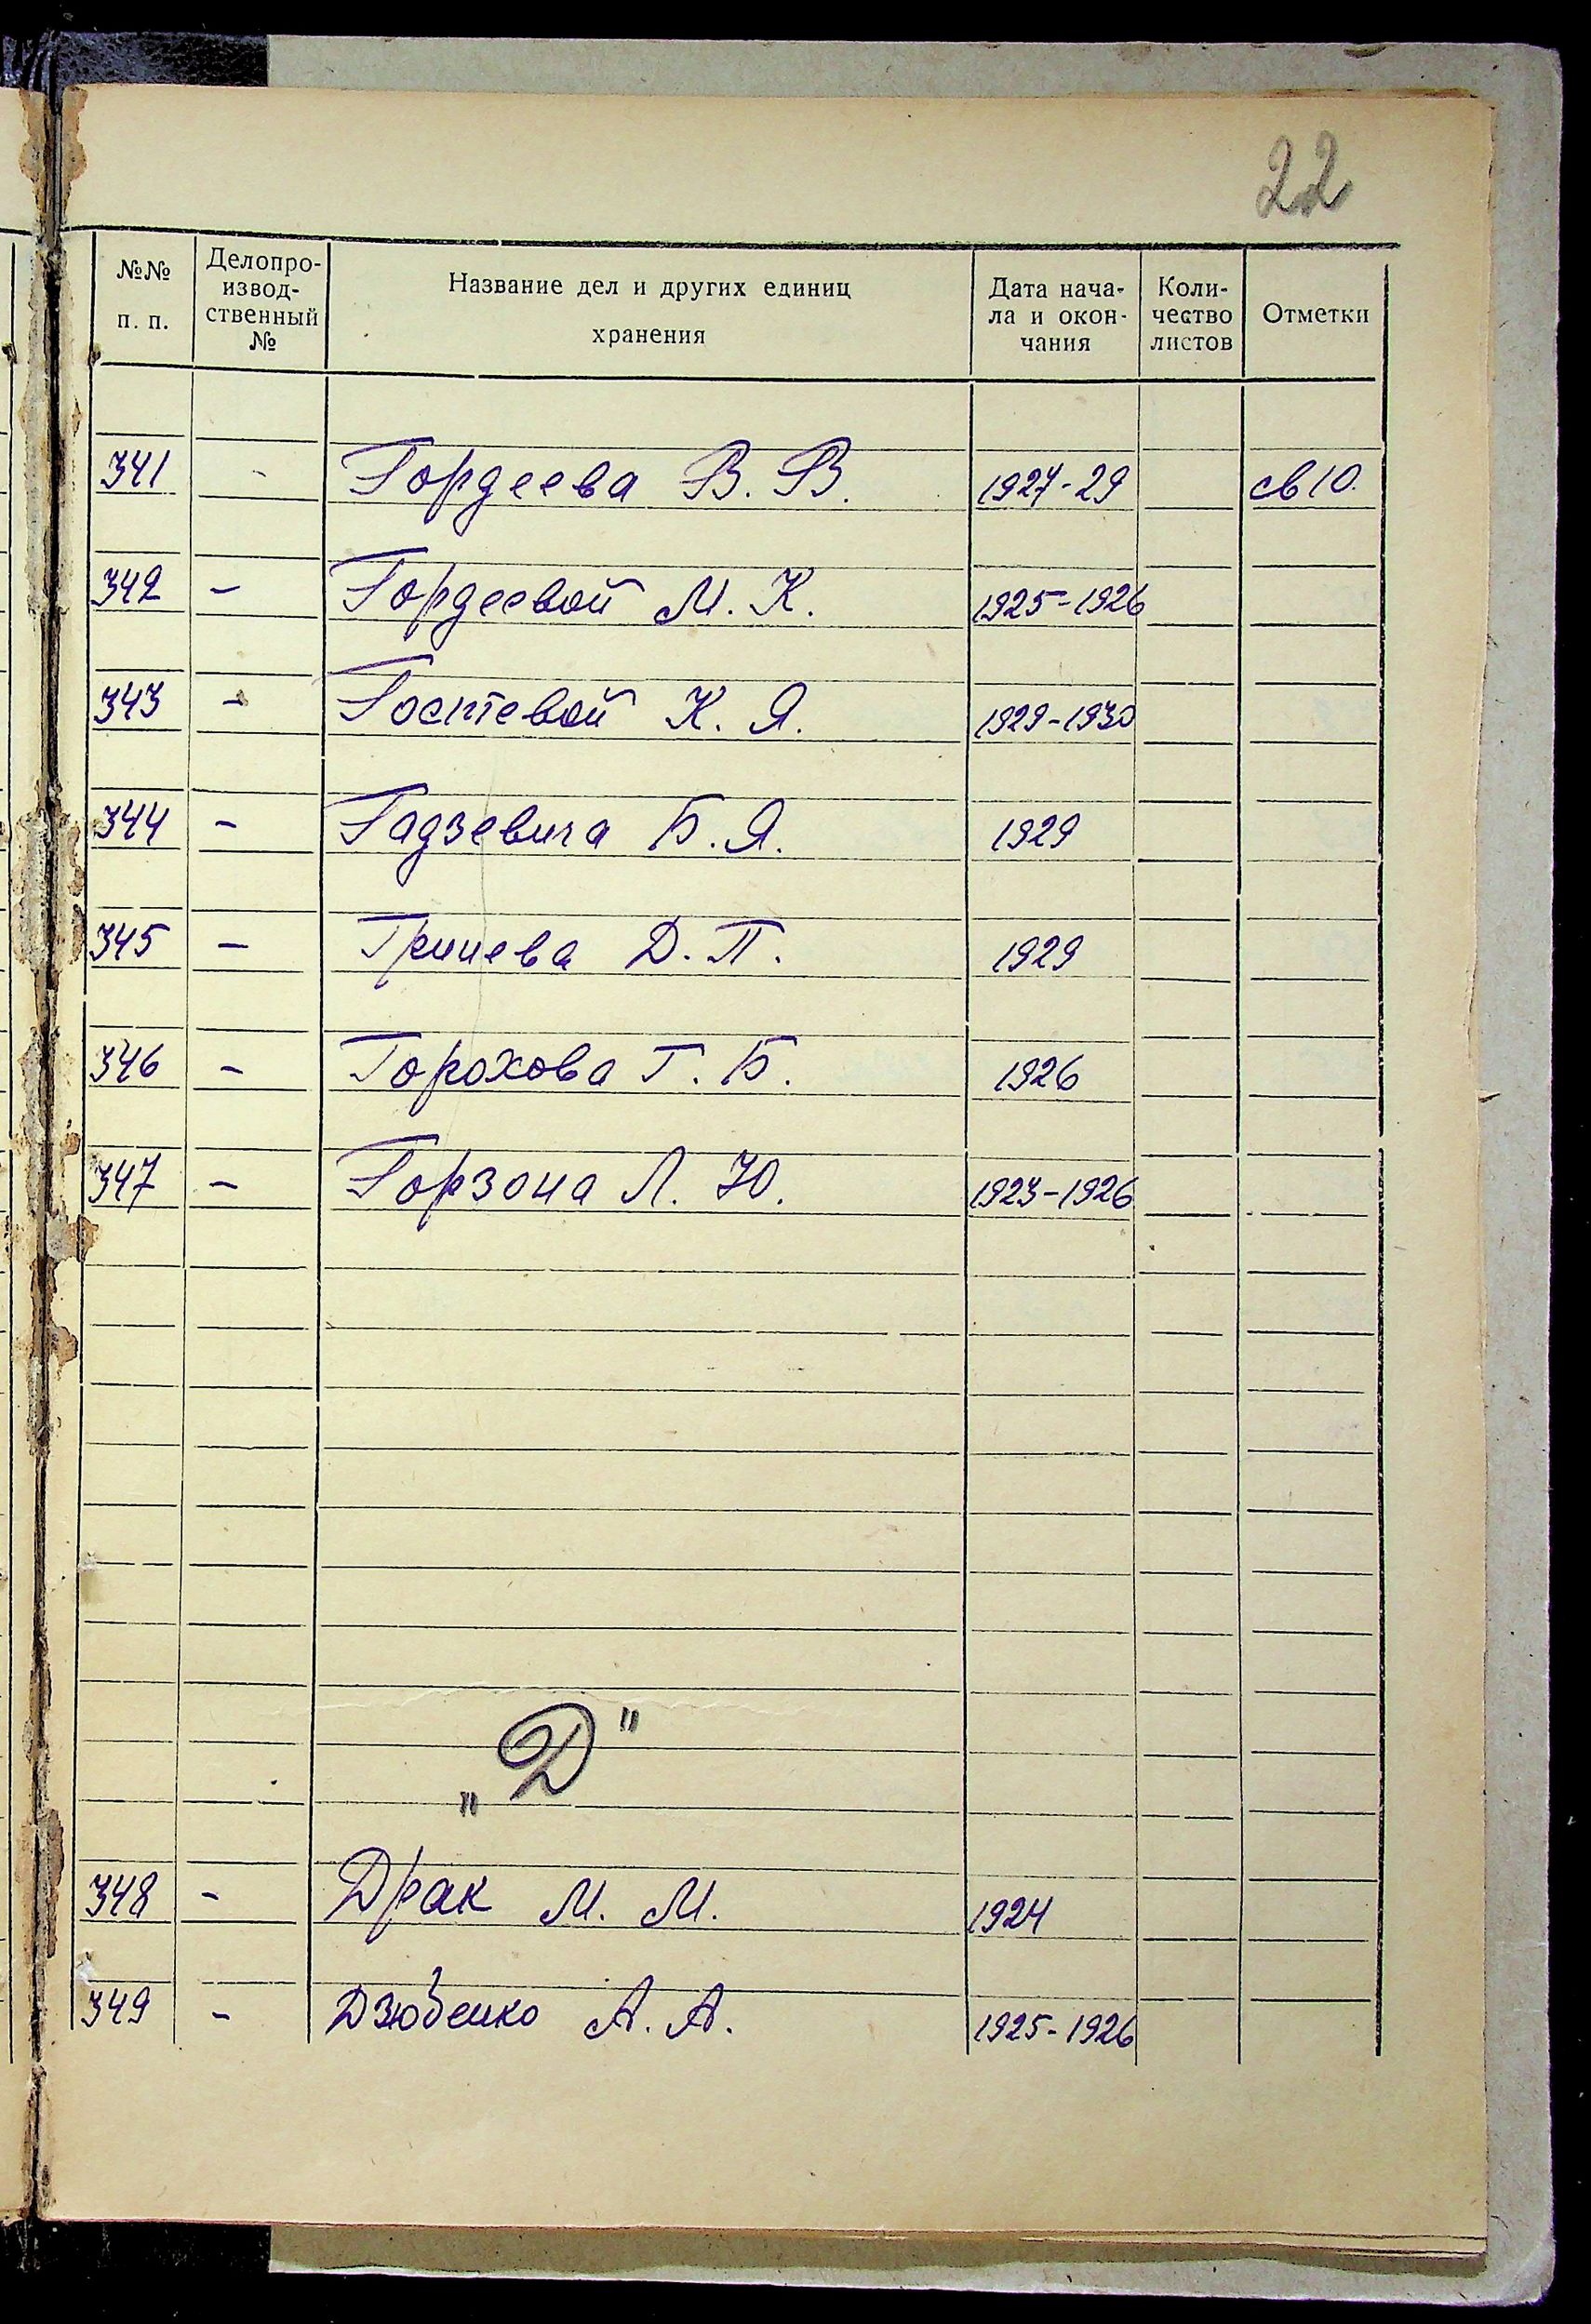 22
№№ п. п.
Делопроизводственный №
Название дел и других единиц хранения
Дата начала и окончания
Количество листов
Отметки
341 - Гордеева В. В. 1927-29 св 10.
342 - Гордеевой М. К. 1925-1926
343 - Гостевой К. Я. 1929-1930
344 - Гадзевича Б. Я. 1929
345 - Гринева Д. П. 1929
346 - Горохова Г. Б. 1926
347 - Горзона Л. Ю. 1923-1926
„Д"
348 - Драк М. М. 1924
349 - Дзюбенко А. А. 1925-1926